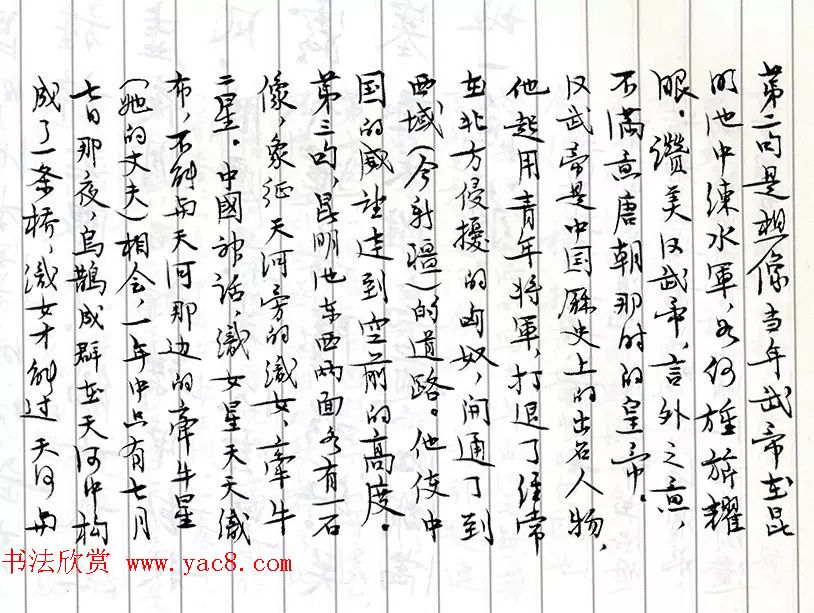 第二句是想像当年武帝在昆
明池中练水軍，如何旌旂耀
眼。讚美汉武帝，言外之意，
不滿意唐朝那时的皇帝。
汉武帝是中国歷史上的出名人物，
他起用青年将軍，打退了经常
在北方侵擾的匈奴，開通了到
西域（今新疆）的道路。他使中
国的威望達到空前的高度。
第三句，昆明池东西两面各有一石
像，象征天河旁的織女、牽牛
二星。中國神话，織女星天天織
布，不能与天河那边的牽牛星
（她的丈夫）相会，一年中只有七月
七日那夜，烏鵲成群在天河中构
成了一条橋，織女才能过天河与
书法欣赏 www.yac8.com